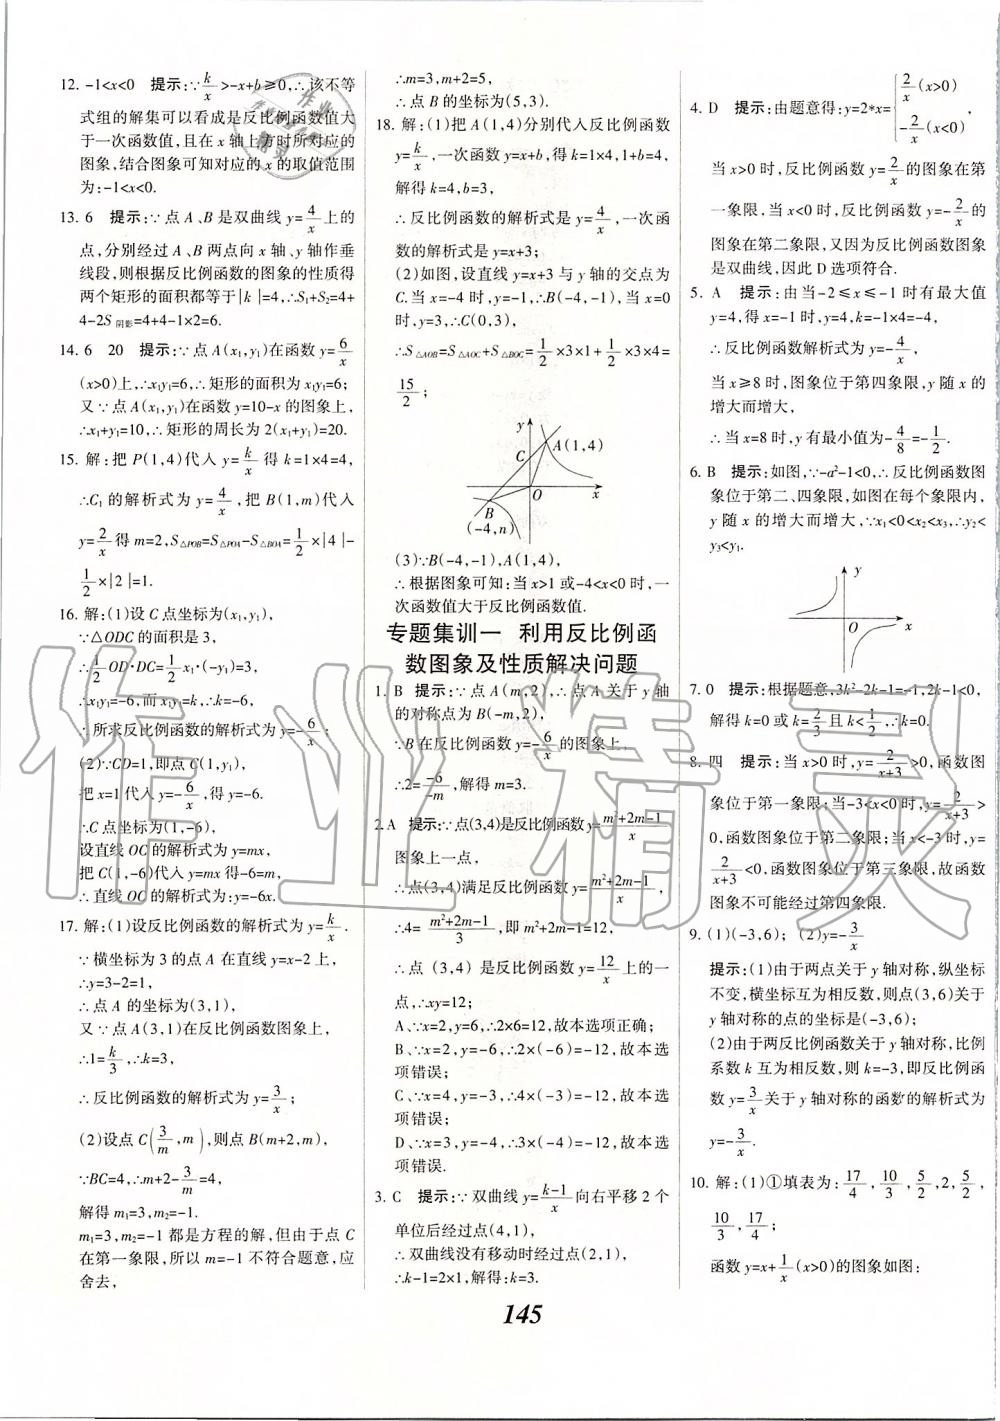 12. -1<x<0　提示:∵k/x>-x+b≥0,∴该不等
式组的解集可以看成是反比例函数值大
于一次函数值,且在 x 轴上方时所对应的
图象,结合图象可知对应的 x 的取值范围
为:-1<x<0.
13. 6　提示:∵点 A、B 是双曲线 y=4/x 上的
点,分别经过 A、B 两点向 x 轴、y 轴作垂
线段,则根据反比例函数的图象的性质得
两个矩形的面积都等于|k|=4,∴S₁+S₂=4+
4-2S阴影=4+4-1×2=6.
14. 6　20　提示:∵点 A(x₁,y₁)在函数 y=6/x
(x>0)上,∴x₁y₁=6,∴矩形的面积为 x₁y₁=6;
又∵点 A(x₁,y₁)在函数 y=10-x 的图象上,
∴x₁+y₁=10,∴矩形的周长为 2(x₁+y₁)=20.
15. 解:把 P(1,4)代入 y=k/x 得 k=1×4=4,
∴C₁ 的解析式为 y=4/x,把 B(1,m)代入
y=2/x 得 m=2,S△POB=S△POA-S△BOA=1/2×|4|-
1/2×|2|=1.
16. 解:(1)设 C 点坐标为(x₁,y₁),
∵△ODC 的面积是 3,
∴1/2 OD·DC=1/2 x₁·(-y₁)=3,
∴x₁y₁=-6,而 x₁y₁=k,∴k=-6,
∴所求反比例函数的解析式为 y=-6/x;
(2)∵CD=1,即点 C(1,y₁),
把 x=1 代入 y=-6/x,得 y=-6.
∴C 点坐标为(1,-6),
设直线 OC 的解析式为 y=mx,
把 C(1,-6)代入 y=mx 得-6=m,
∴直线 OC 的解析式为:y=-6x.
17. 解:(1)设反比例函数的解析式为 y=k/x.
∵横坐标为 3 的点 A 在直线 y=x-2 上,
∴y=3-2=1,
∴点 A 的坐标为(3,1),
又∵点 A(3,1)在反比例函数图象上,
∴1=k/3,∴k=3,
∴反比例函数的解析式为 y=3/x;
(2)设点 C(3/m,m),则点 B(m+2,m),
∵BC=4,∴m+2-3/m=4,
解得 m₁=3,m₂=-1.
m₁=3,m₂=-1 都是方程的解,但由于点 C
在第一象限,所以 m=-1 不符合题意,应
舍去,
∴m=3,m+2=5,
∴点 B 的坐标为(5,3).
18. 解:(1)把 A(1,4)分别代入反比例函数
y=k/x,一次函数 y=x+b,得 k=1×4,1+b=4,
解得 k=4,b=3,
∴反比例函数的解析式是 y=4/x,一次函
数的解析式是 y=x+3;
(2)如图,设直线 y=x+3 与 y 轴的交点为
C.当 x=-4 时,y=-1,∴B(-4,-1),当 x=0
时,y=3,∴C(0,3),
∴S△AOB=S△AOC+S△BOC=1/2×3×1+1/2×3×4=
15/2;
y
A(1,4)
C
O
x
B
(-4,n)
(3)∵B(-4,-1),A(1,4),
∴根据图象可知:当 x>1 或-4<x<0 时,一
次函数值大于反比例函数值.
专题集训一　利用反比例函
数图象及性质解决问题
1. B　提示:∵点 A(m,2),∴点 A 关于 y 轴
的对称点为 B(-m,2),
∵B 在反比例函数 y=-6/x 的图象上,
∴2=-6/-m,解得 m=3.
2. A　提示:∵点(3,4)是反比例函数 y=m²+2m-1/x
图象上一点,
∴点(3,4)满足反比例函数 y=m²+2m-1/x,
∴4=m²+2m-1/3,即 m²+2m-1=12,
∴点(3,4)是反比例函数 y=12/x 上的一
点,∴xy=12;
A、∵x=2,y=6,∴2×6=12,故本选项正确;
B、∵x=2,y=-6,∴2×(-6)=-12,故本选
项错误;
C、∵x=4,y=-3,∴4×(-3)=-12,故本选
项错误;
D、∵x=3,y=-4,∴3×(-4)=-12,故本选
项错误.
3. C　提示:∵双曲线 y=k-1/x 向右平移 2 个
单位后经过点(4,1),
∴双曲线没有移动时经过点(2,1),
∴k-1=2×1,解得:k=3.
4. D　提示:由题意得:y=2*x={2/x(x>0)
-2/x(x<0)
当 x>0 时,反比例函数 y=2/x 的图象在第
一象限,当 x<0 时,反比例函数 y=-2/x 的
图象在第二象限,又因为反比例函数图象
是双曲线,因此 D 选项符合.
5. A　提示:由当-2≤x≤-1 时有最大值
y=4,得 x=-1 时,y=4,k=-1×4=-4,
∴反比例函数解析式为 y=-4/x,
当 x≥8 时,图象位于第四象限,y 随 x 的
增大而增大,
∴当 x=8 时,y 有最小值为-4/8=-1/2.
6. B　提示:如图,∵-a²-1<0,∴反比例函数图
象位于第二、四象限,如图在每个象限内,
y 随 x 的增大而增大,∵x₁<0<x₂<x₃,∴y₂<
y₃<y₁.
y
O
x
7. 0　提示:根据题意,3k²-2k-1=-1,2k-1<0,
解得 k=0 或 k=2/3 且 k<1/2,∴k=0.
8. 四　提示:当 x>0 时,y=2/x+3>0,函数图
象位于第一象限;当-3<x<0 时,y=2/x+3>
0,函数图象位于第二象限;当 x<-3 时,y=
2/x+3<0,函数图象位于第三象限,故函数
图象不可能经过第四象限.
9. (1)(-3,6);　(2)y=-3/x
提示:(1)由于两点关于 y 轴对称,纵坐标
不变,横坐标互为相反数,则点(3,6)关于
y 轴对称的点的坐标是(-3,6);
(2)由于两反比例函数关于 y 轴对称,比例
系数 k 互为相反数,则 k=-3,即反比例函
数 y=3/x 关于 y 轴对称的函数的解析式为
y=-3/x.
10. 解:(1)①填表为:17/4,10/3,5/2,2,5/2,
10/3,17/4;
函数 y=x+1/x(x>0)的图象如图:
145
作业精灵